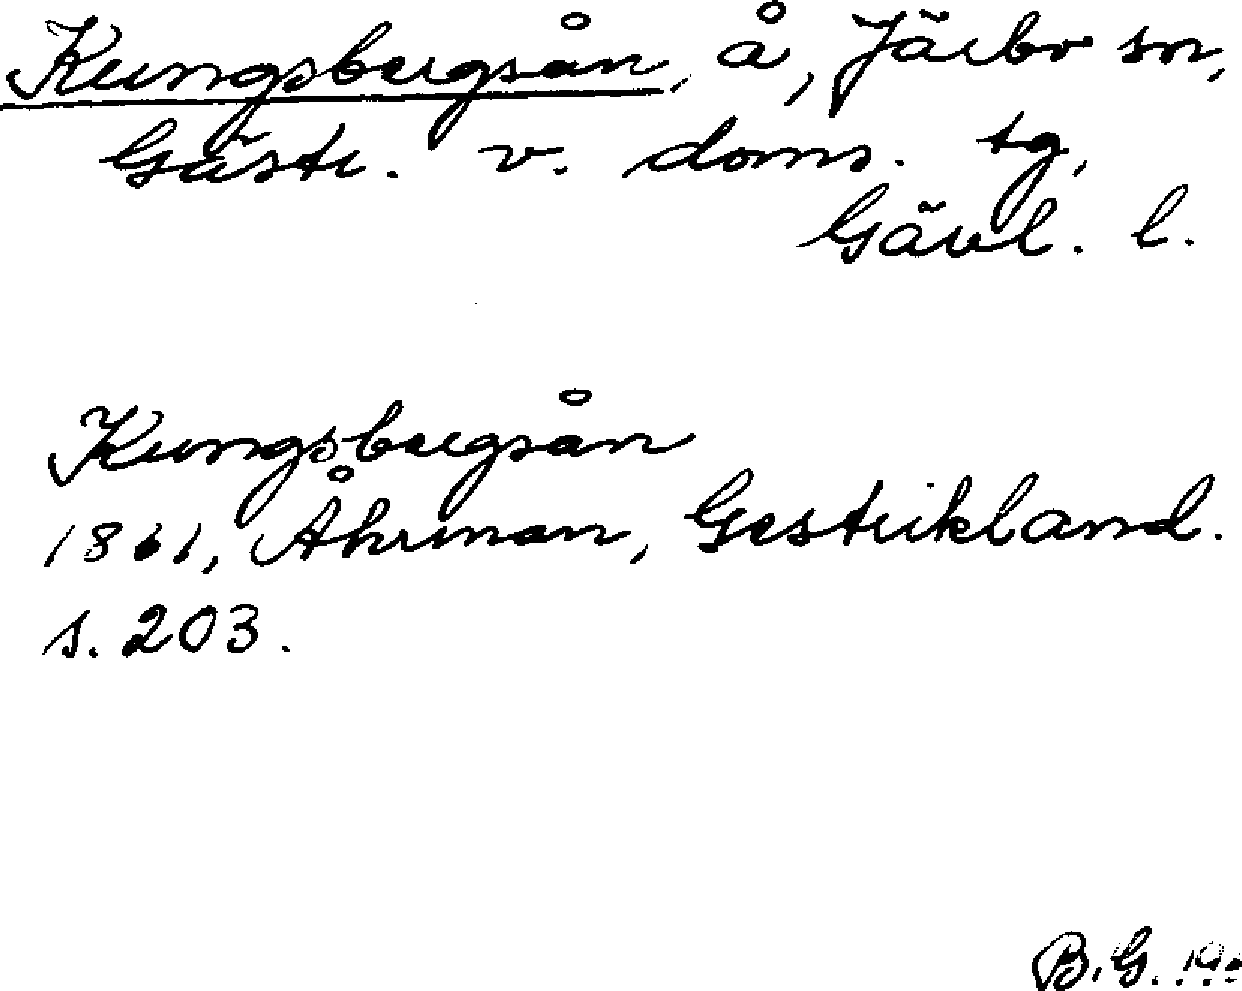 Kungsbergsån, å, Järbo sn,
Gästr. v. doms. tg,
Gävl. l.
Kungsbergsån
1861, Åhrman, Gestrikland.
s. 203.
B.G.